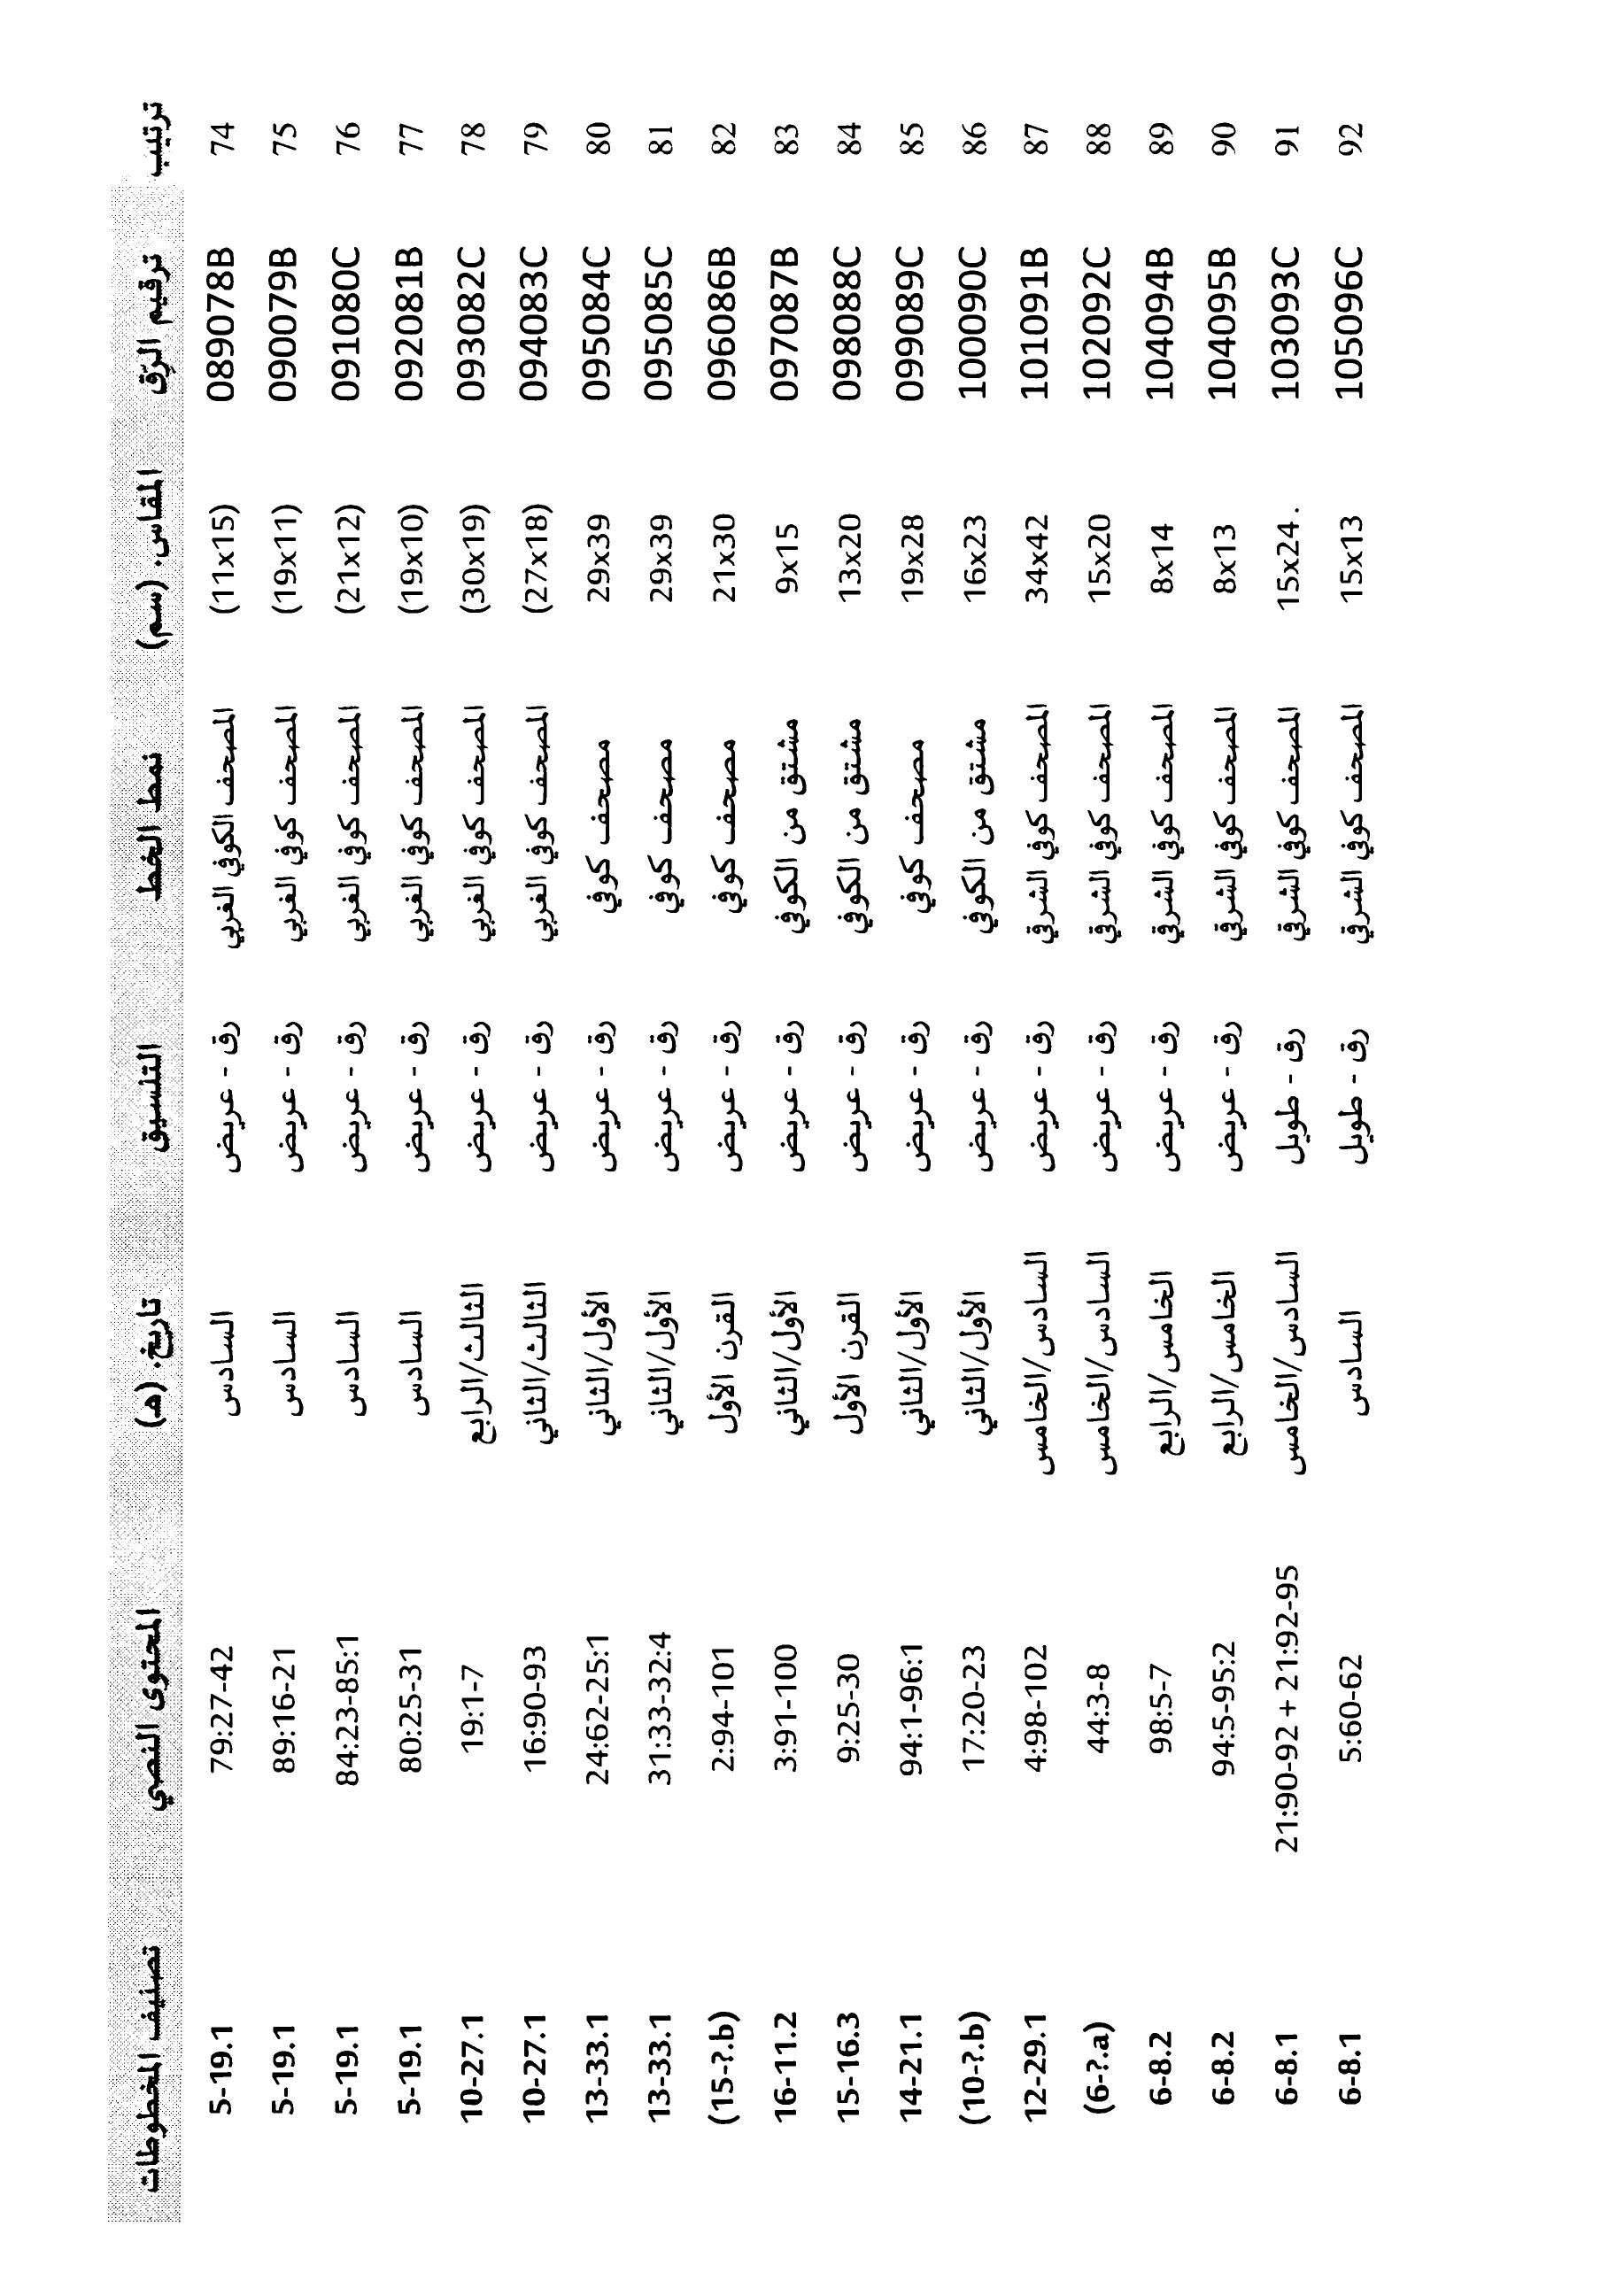 ترتيب ترقيم الرّق المقاس. (سم) نمط الخط التلسيق تاريخ. (هـ) المحتوى النصي تصنيف المخطوطات
74 089078B (11x15) المصحف الكوفي الغربي رق - عريض السادس 79:27-42 5-19.1
75 090079B (19x11) المصحف كوفي الغربي رق - عريض السادس 89:16-21 5-19.1
76 091080C (21x12) المصحف كوفي الغربي رق - عريض السادس 84:23-85:1 5-19.1
77 092081B (19x10) المصحف كوفي الغربي رق - عريض السادس 80:25-31 5-19.1
78 093082C (30x19) المصحف كوفي الغربي رق - عريض الثالث/الرابع 19:1-7 10-27.1
79 094083C (27x18) المصحف كوفي الغربي رق - عريض الثالث/الثاني 16:90-93 10-27.1
80 095084C 29x39 مصحف كوفي رق - عريض الأول/الثاني 24:62-25:1 13-33.1
81 095085C 29x39 مصحف كوفي رق - عريض الأول/الثاني 31:33-32:4 13-33.1
82 096086B 21x30 مصحف كوفي رق - عريض القرن الأول 2:94-101 (15-?.b)
83 097087B 9x15 مشتق من الكوفي رق - عريض الأول/الثاني 3:91-100 16-11.2
84 098088C 13x20 مشتق من الكوفي رق - عريض القرن الأول 9:25-30 15-16.3
85 099089C 19x28 مصحف كوفي رق - عريض الأول/الثاني 94:1-96:1 14-21.1
86 100090C 16x23 مشتق من الكوفي رق - عريض الأول/الثاني 17:20-23 (10-?.b)
87 101091B 34x42 المصحف كوفي الشرقي رق - عريض السادس/الخامس 4:98-102 12-29.1
88 102092C 15x20 المصحف كوفي الشرقي رق - عريض السادس/الخامس 44:3-8 (6-?.a)
89 104094B 8x14 المصحف كوفي الشرقي رق - عريض الخامس/الرابع 98:5-7 6-8.2
90 104095B 8x13 المصحف كوفي الشرقي رق - عريض الخامس/الرابع 94:5-95:2 6-8.2
91 103093C 15x24. المصحف كوفي الشرقي رق - طويل السادس/الخامس 21:90-92 + 21:92-95 6-8.1
92 105096C 15x13 المصحف كوفي الشرقي رق - طويل السادس 5:60-62 6-8.1